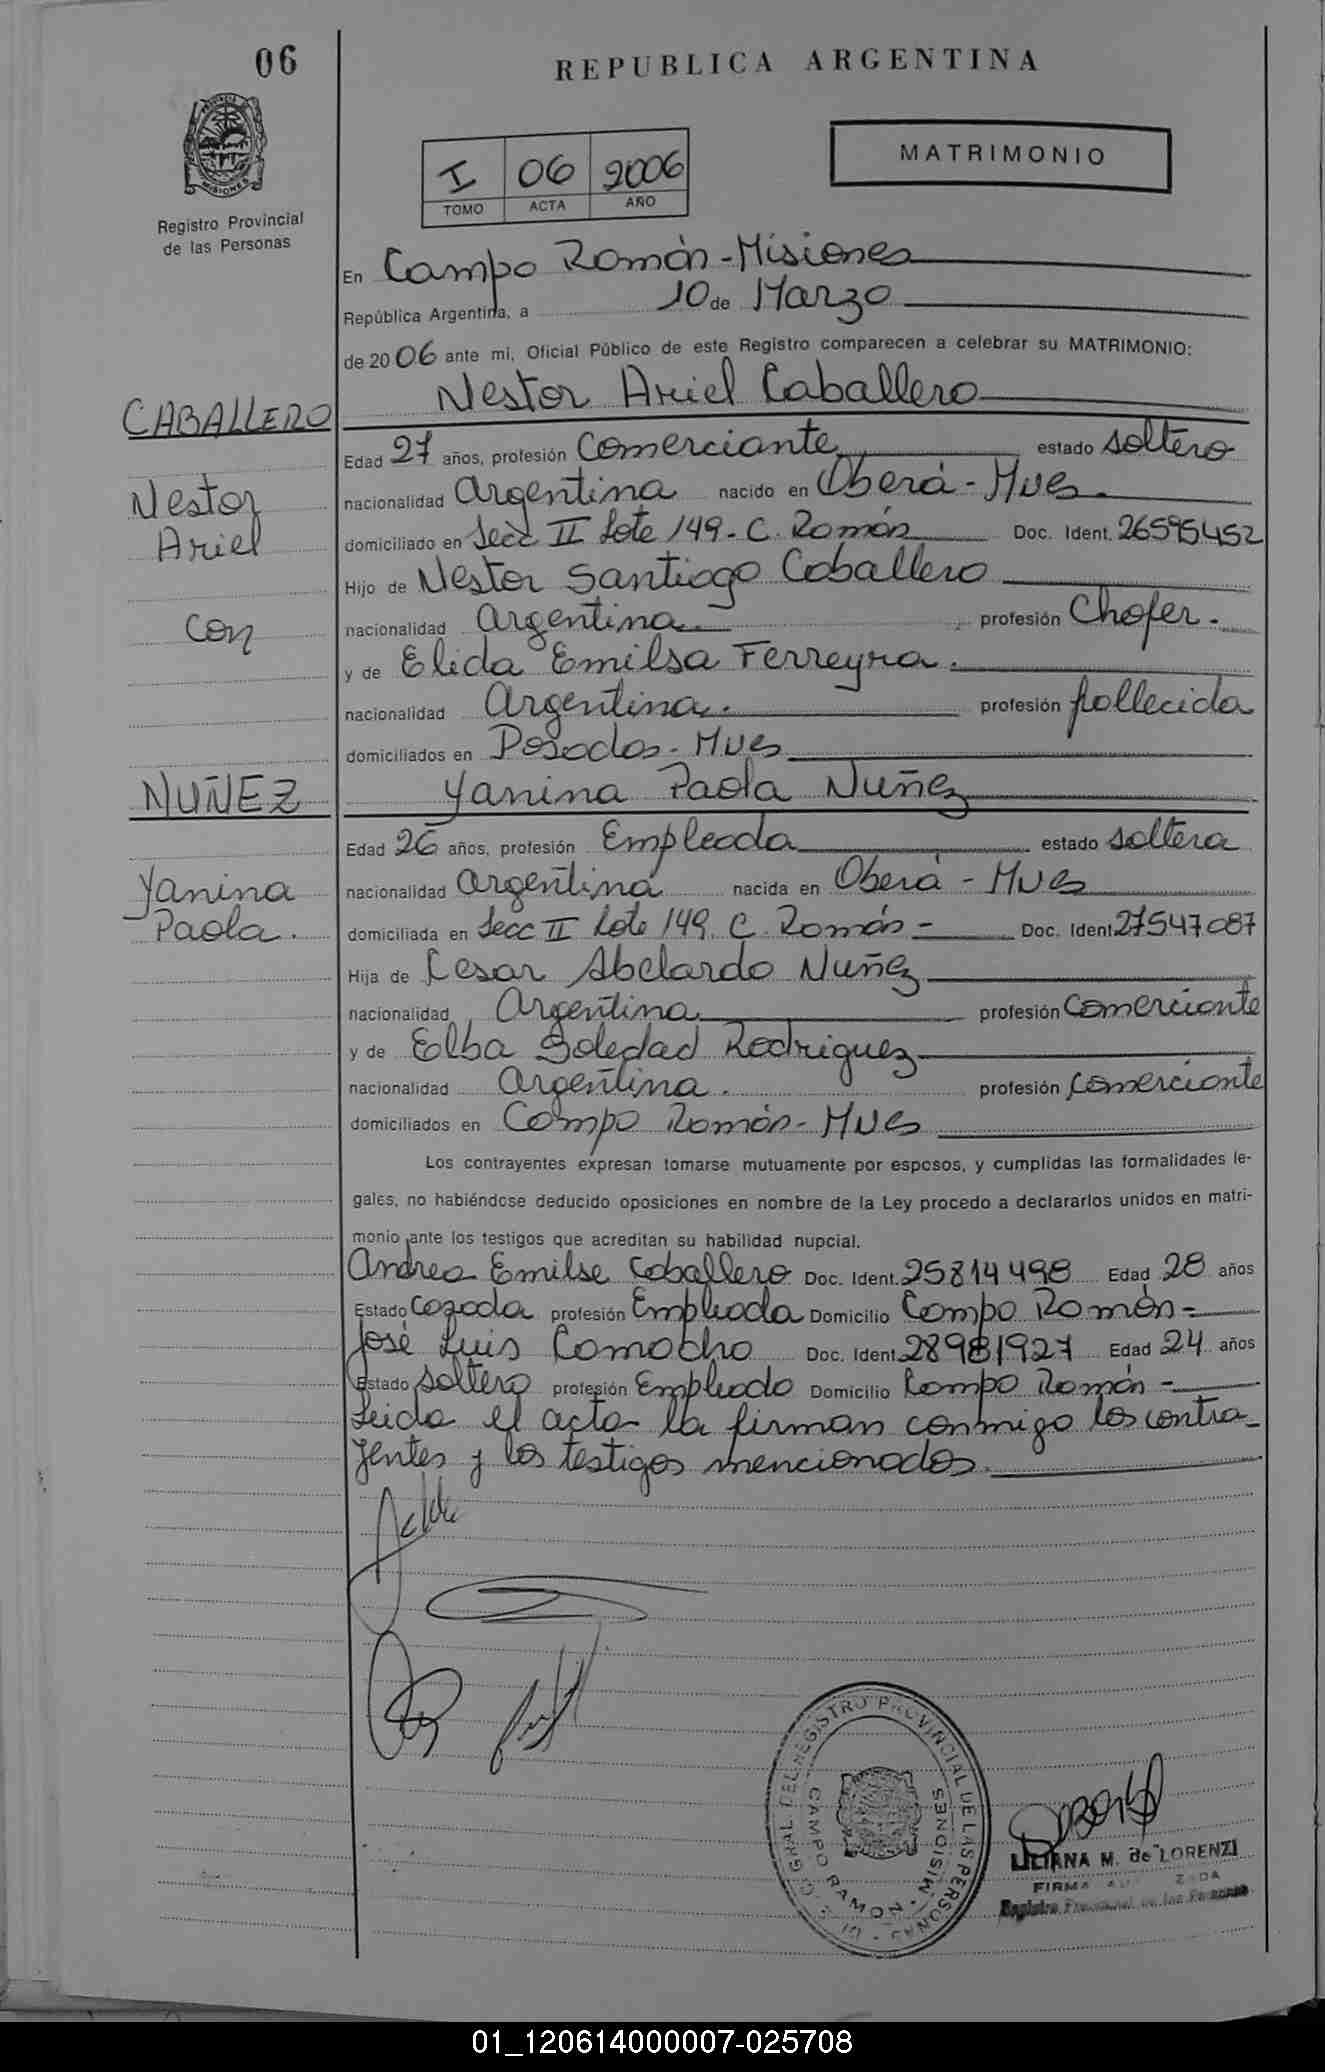 06
REPUBLICA ARGENTINA
PROVINCIA DE
MISIONES
Registro Provincial
de las Personas
I 06 2006
TOMO ACTA AÑO
MATRIMONIO
En Campo Ramón - Misiones
República Argentina, a 10 de Marzo
de 2006 ante mi, Oficial Público de este Registro comparecen a celebrar su MATRIMONIO:
Nestor Ariel Caballero
CABALLERO
Nestor
Ariel
con
NUÑEZ
Yanina
Paola.
Edad 27 años, profesión Comerciante estado soltero
nacionalidad Argentina nacido en Oberá - Mnes.
domiciliado en Secc II Lote 149 - C. Ramón Doc. Ident. 26595452
Hijo de Nestor Santiago Caballero
nacionalidad Argentina profesión Chofer.
y de Elida Emilsa Ferreyra.
nacionalidad Argentina. profesión fallecida
domiciliados en Posadas - Mnes
Yanina Paola Nuñez
Edad 26 años, profesión Empleada estado soltera
nacionalidad Argentina nacida en Oberá - Mnes
domiciliada en Secc II Lote 149. C. Ramón - Doc. Ident 27547087
Hija de Cesar Abelardo Nuñez
nacionalidad Argentina profesión Comerciante
y de Elba Soledad Rodriguez
nacionalidad Argentina. profesión comerciante
domiciliados en Campo Ramón - Mnes
Los contrayentes expresan tomarse mutuamente por esposos, y cumplidas las formalidades le-
gales, no habiéndose deducido oposiciones en nombre de la Ley procedo a declararlos unidos en matri-
monio ante los testigos que acreditan su habilidad nupcial.
Andrea Emilse Caballero Doc. Ident. 25814498 Edad 28 años
Estado cazada profesión Empleada Domicilio Campo Ramón -
José Luis Camacho Doc. Ident 28981927 Edad 24 años
Estado soltero profesión Empleado Domicilio Campo Ramón -
Leida el acta la firman conmigo los contra-
yentes y los testigos mencionados.
GRAL DEL REGISTRO PROVINCIAL DE LAS PERSONAS
CAMPO RAMON - MISIONES
LILIANA M. de LORENZI
FIRMA
Registro Provincial de las Personas
01_120614000007-025708